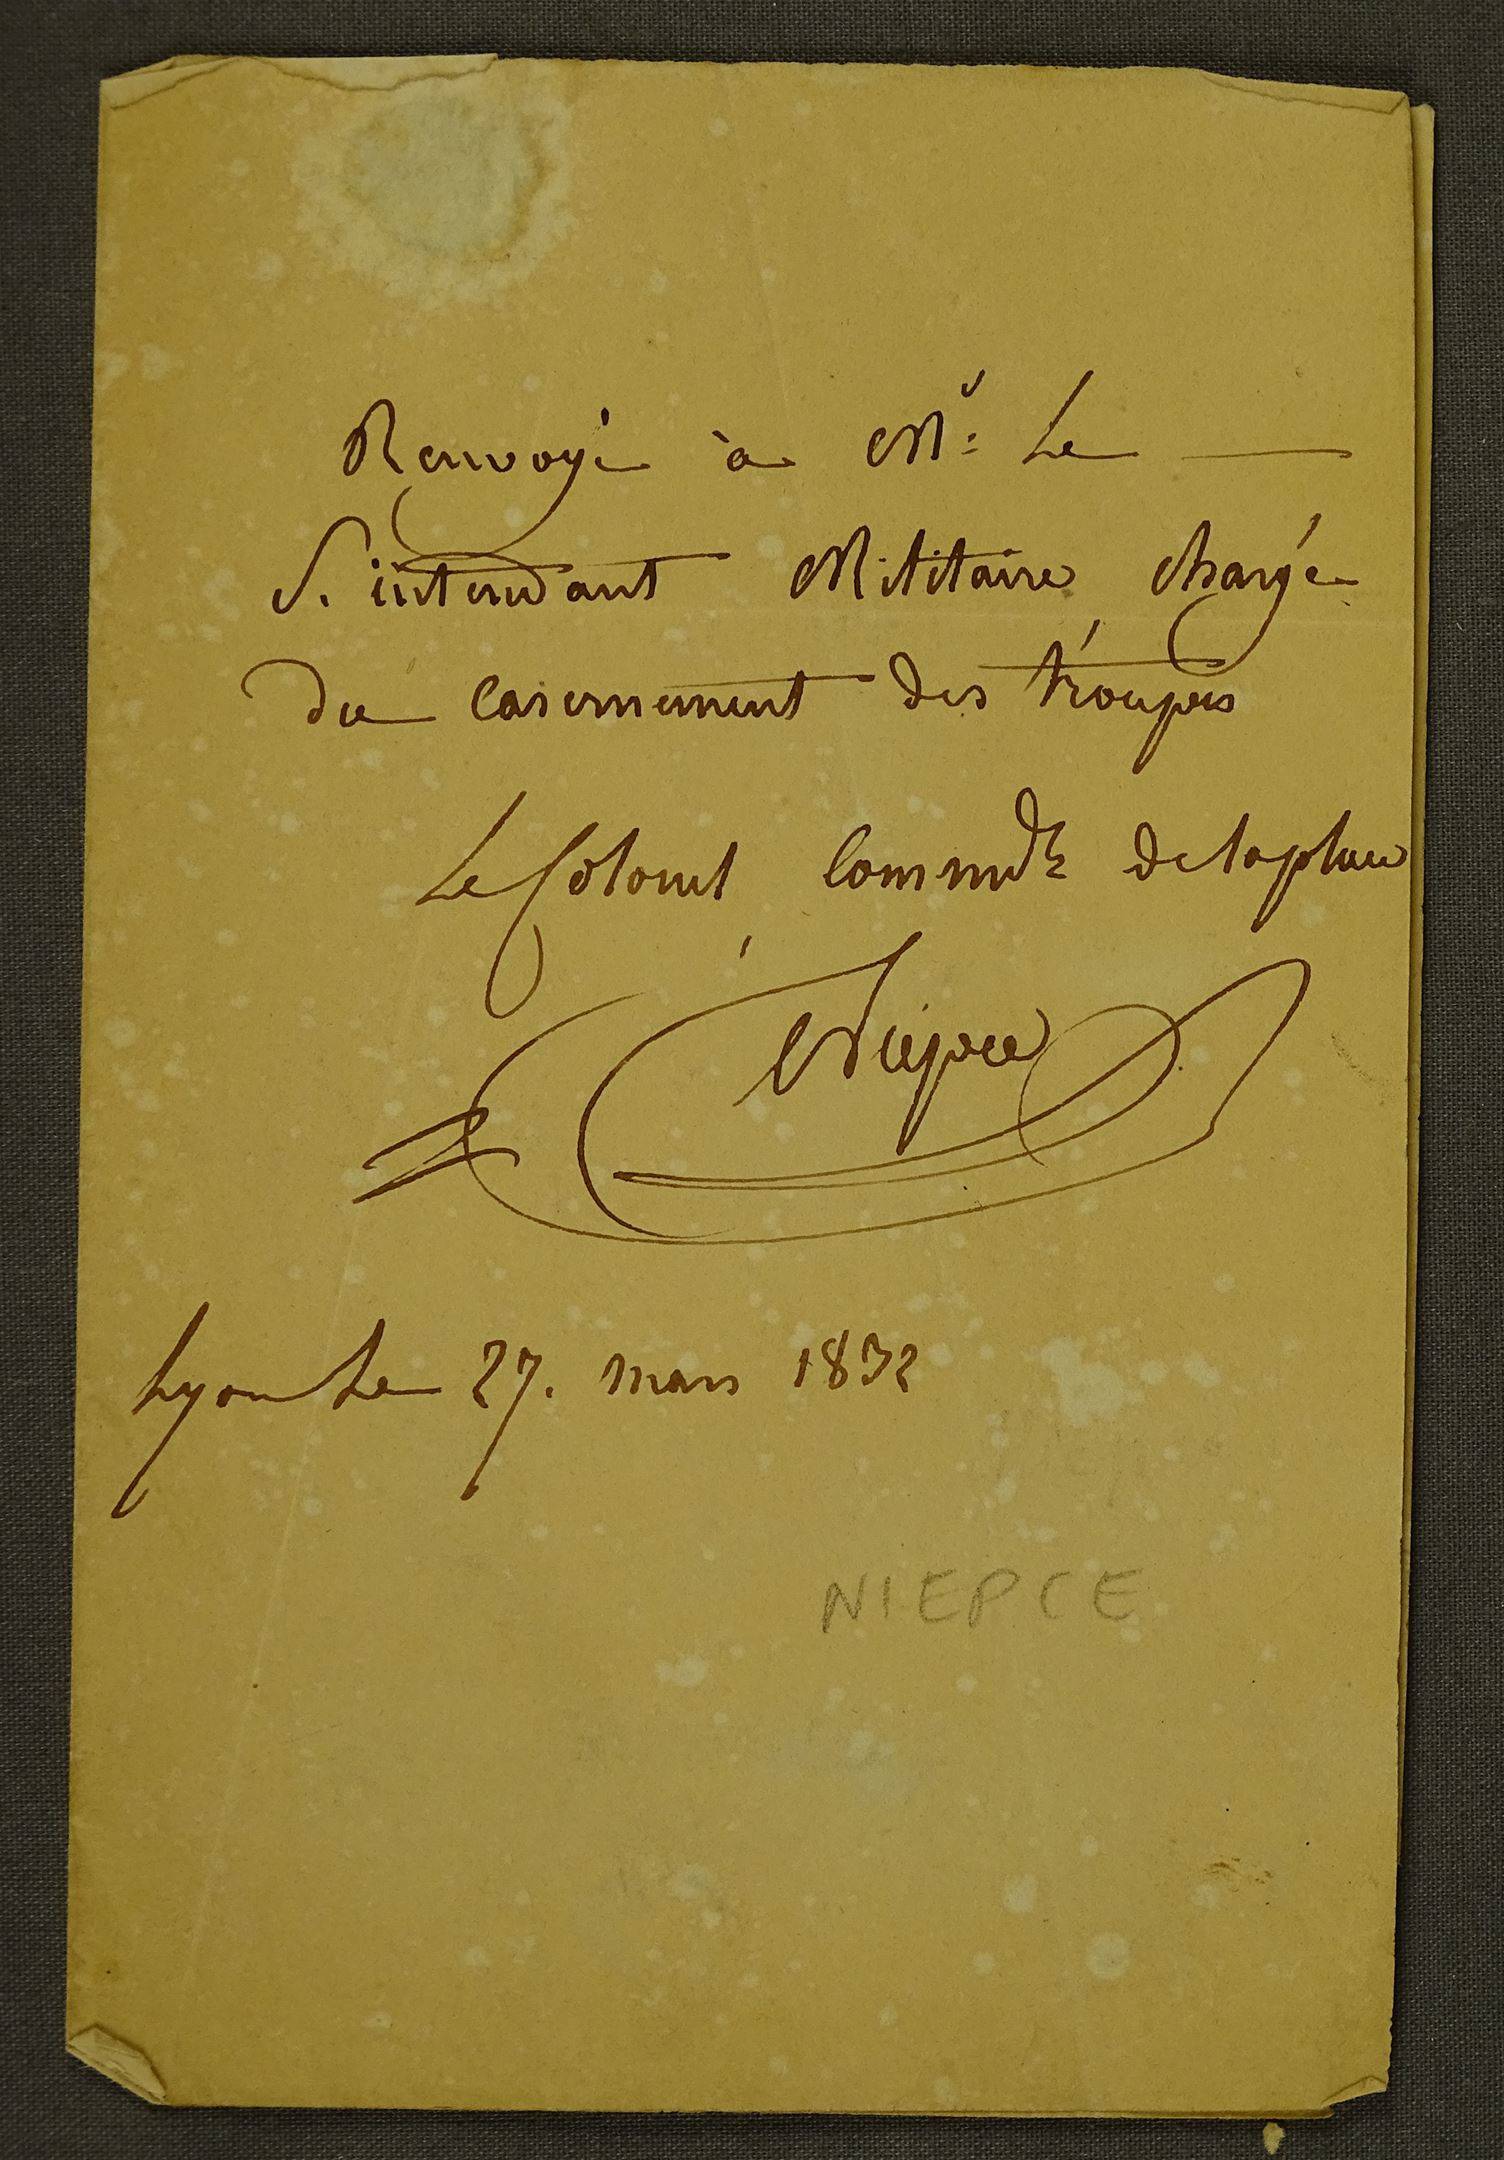 Renvoyé à Mr. Le —
S. intendant Militaire chargé
du casernement des troupes
Le Colonel Commdt de la place
Niepce
Lyon Le 27. mars 1832
NIEPCE